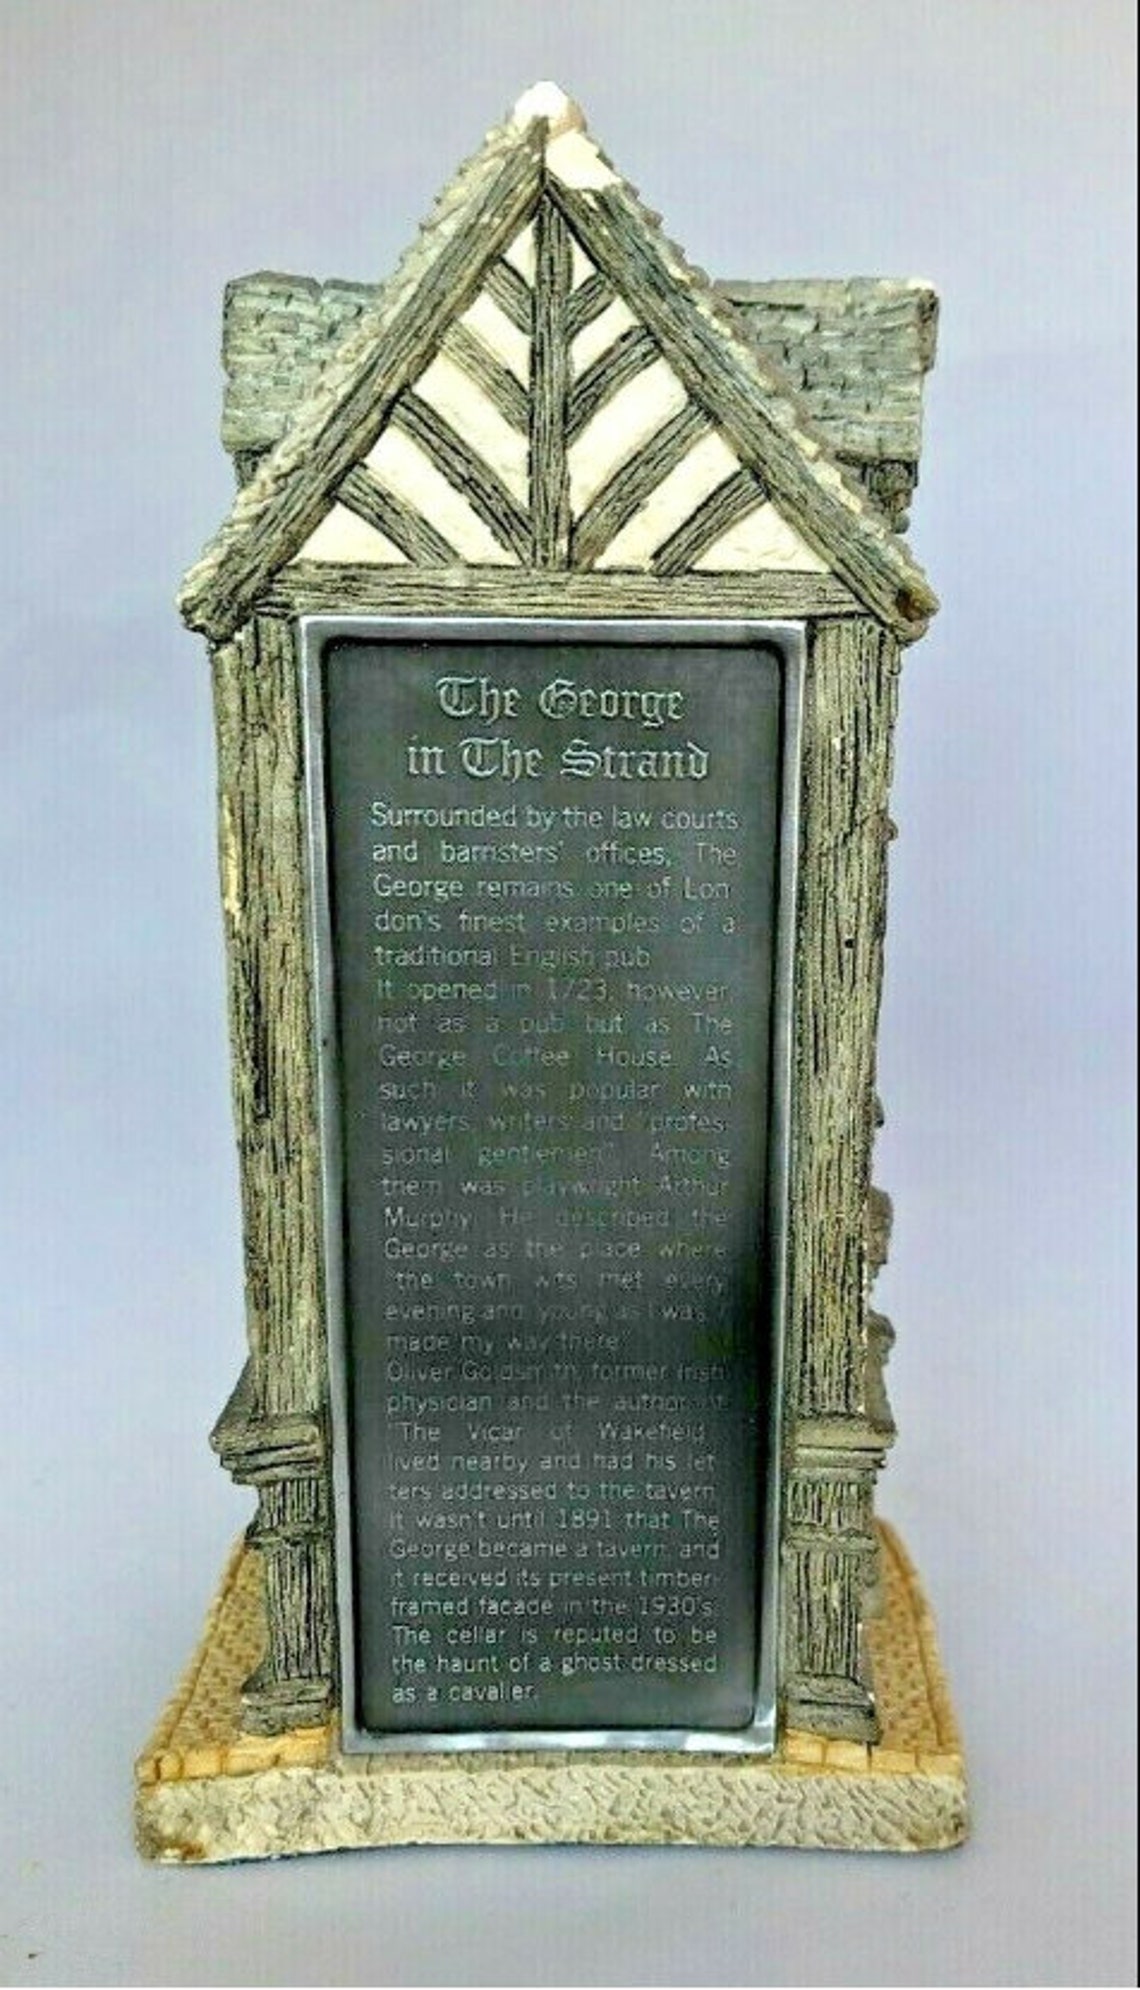 The George
in The Strand
Surrounded by the law courts
and barristers' offices, The
George remains one of Lon
don's finest examples of a
traditional English pub
It opened in 1723, however,
not as a pub but as The
George Coffee House. As
such it was popular with
lawyers, writers and "profes-
sional gentlemen". Among
them was playwright Arthur
Murphy. He described the
George as the place where
"the town wits met every
evening and young as I was I
made my way there"
Oliver Goldsmith, former Irish
physician and the author of
"The Vicar of Wakefield
lived nearby and had his let
ters addressed to the tavern.
It wasn't until 1891 that The
George became a tavern, and
it received its present timber-
framed facade in the 1930's.
The cellar is reputed to be
the haunt of a ghost dressed
as a cavalier.